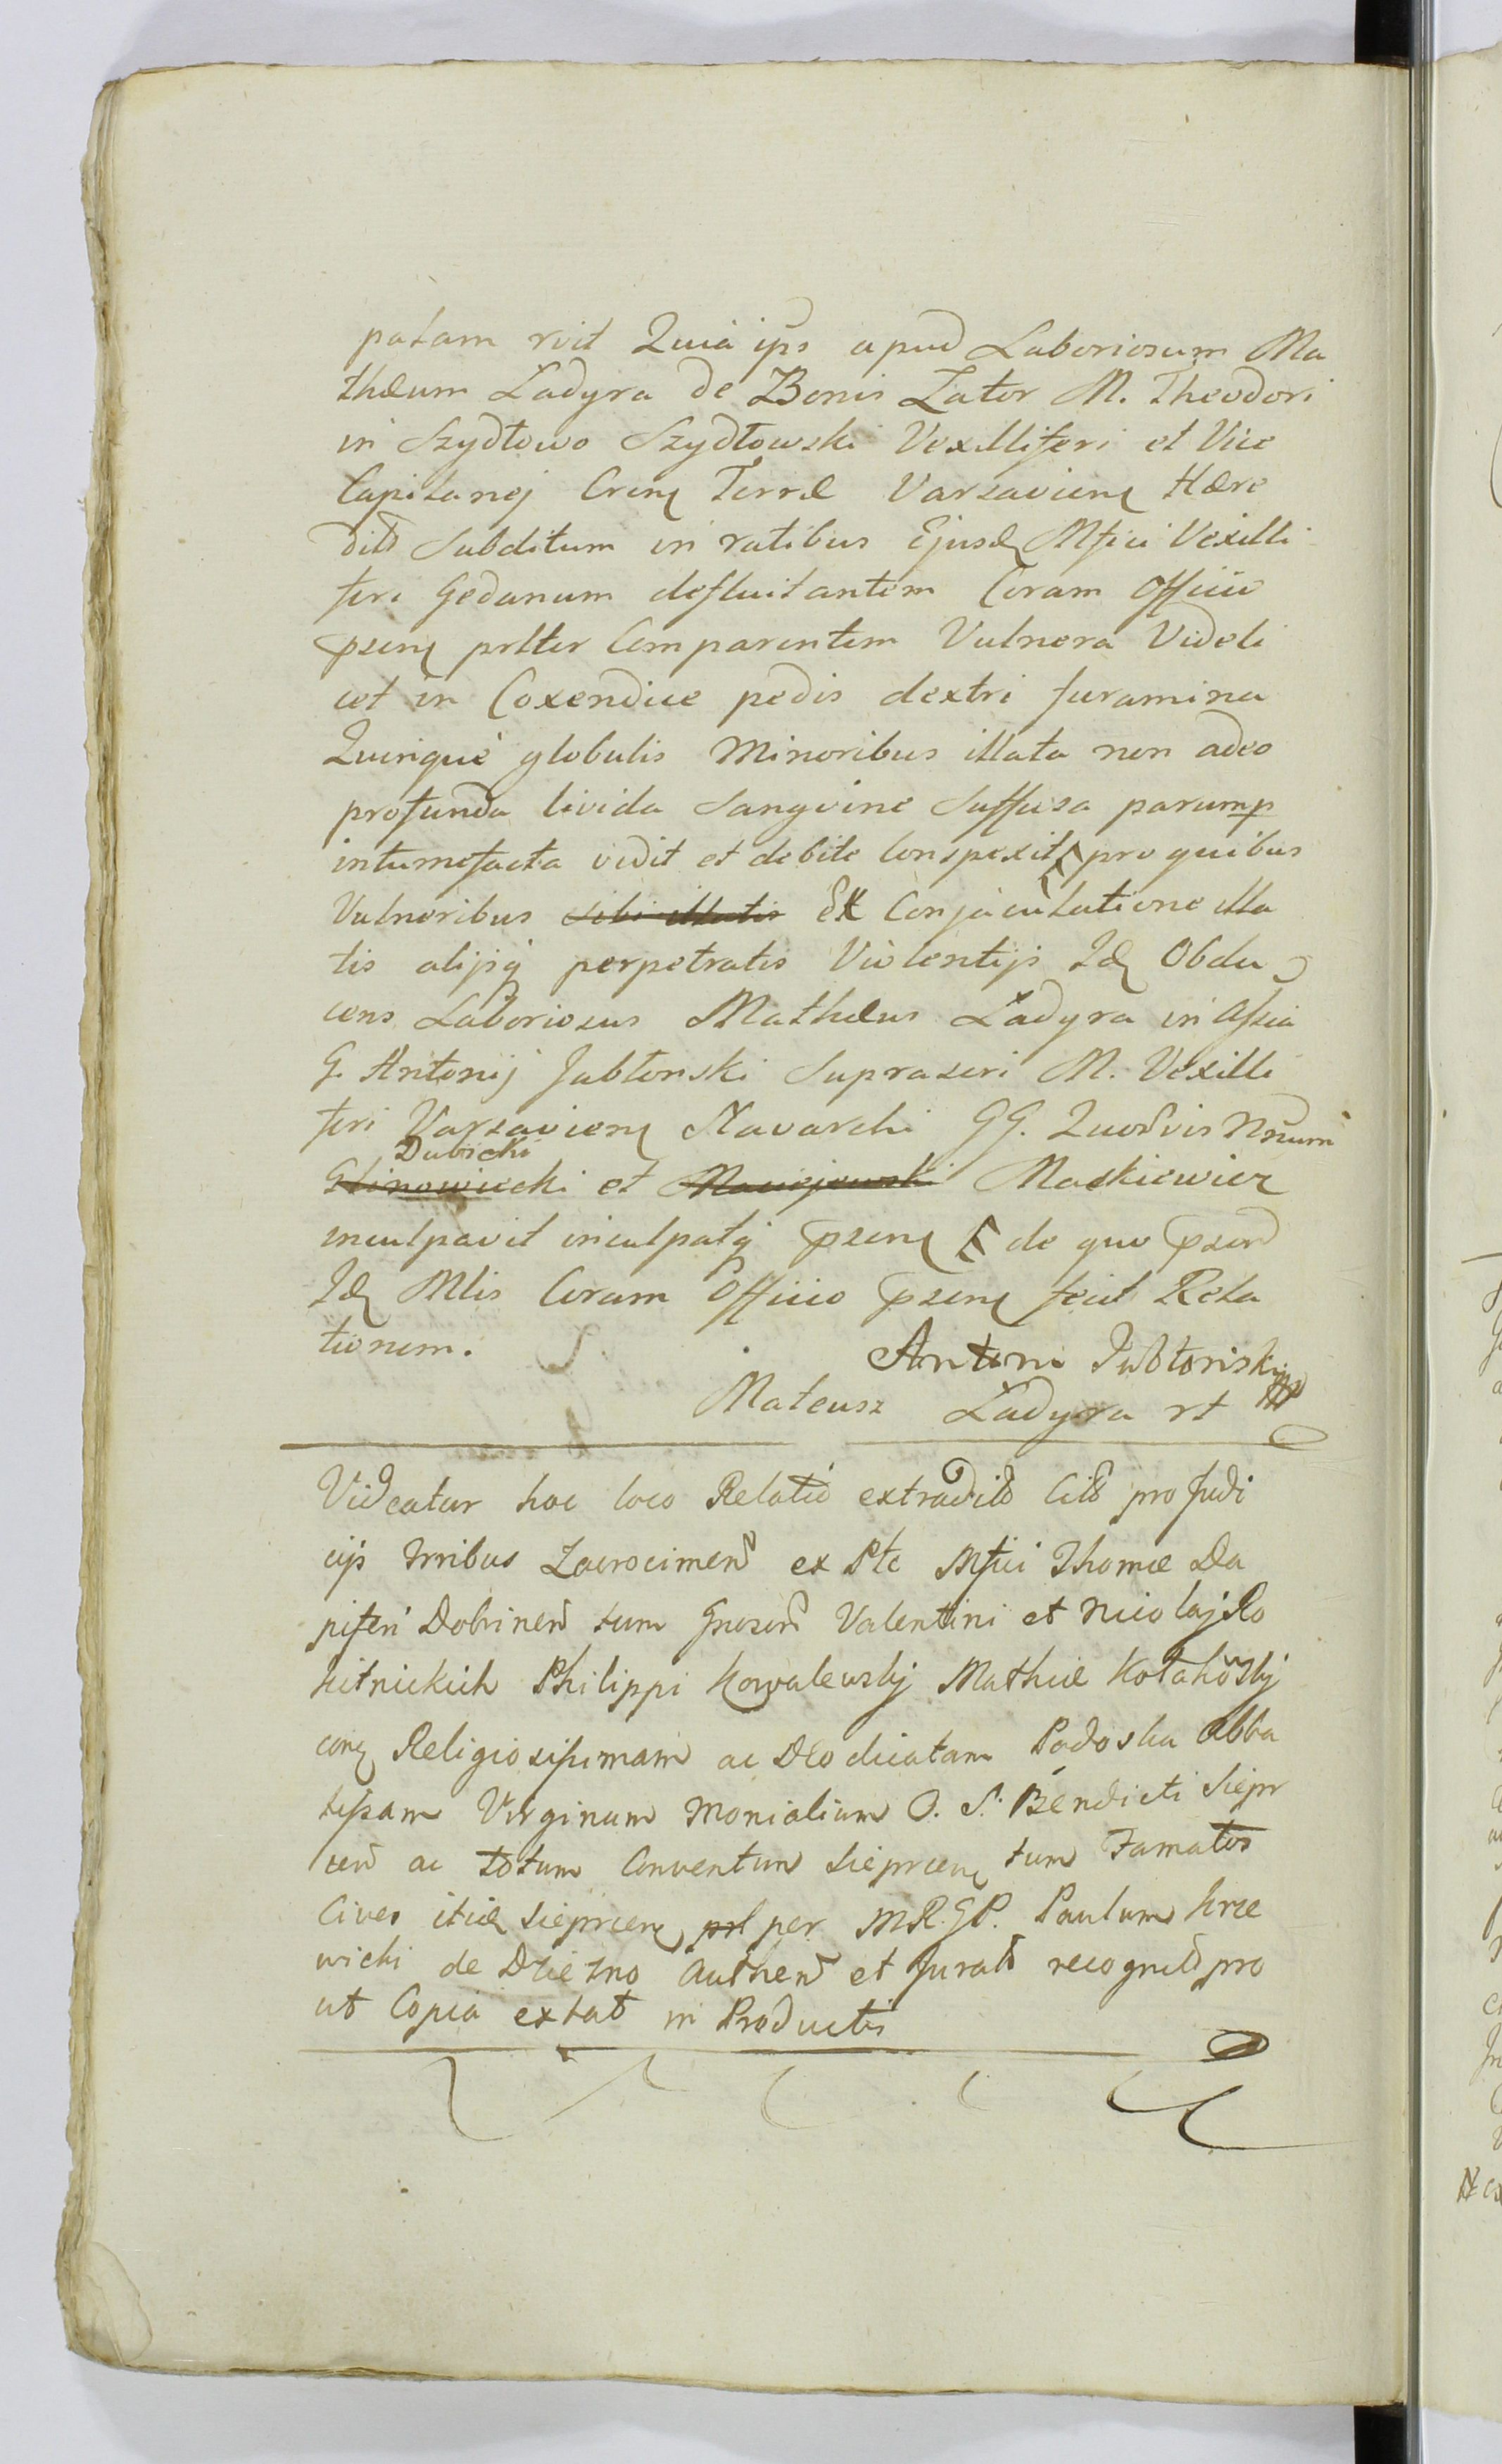 patam rvit Quia ips apud Laboriosum Ma
thæum Ladyra de Bonis Zator M. Theodori
in Szydłowo Szydłowski Vexilliferi et Vice
Capitanej Cren Terræ Varsavien Hære
dit Subditum in ratibus Ejusd Mfici Vexilli
feri Gedanum defluitantem Coram Officio
pzen prltter Comparentem Vulnera Videli
cet in Coxendice pedis dextri foramina
Quinque globulis Minoribus illata non adeo
profunda livida Sangvine Suffusa parump
intumefacta vidit et debite Conspexit pro quibus
Vulneribus sibi illatis Ex Conjaculatione illa
tis alijsq perpetratis Violentijs Id Obdu
cens Laboriosus Mathæus Ladyra in assia
G. Antonij Jabłonski Suprascri M. Vexilli
feri Varsavien Navarchi GG. Quosvis Nrum
Dubicki
Glinowiecki et Maciejewski Maskiewicz
inculpavit inculpatq pzen de quo pzen
Id Mlis Coram Officio pzen fecit Rela
tionem.
Antoni Jabłoniski mp
Mateusz Ladyra rt
Videatur hoc loco Relatio extradit Cit pro Judi
cijs Trribus Zacrocimen ex Pte Mfici Thomæ Da
piferi Dobrinen tum Gnosor Valentini et Nicolaj Ro
kitnickich Philippi Kowalewskj Mathiæ Kołakoskj
con Religiosissimam ac Deo dicatam Padoska Abba
tissam Virginum Monialium O. S. Bendicti Siepr
cen ac totum Conventum Sieprcen tum Famatos
Cives itid Sieprcen prl per MRGP. Paulum Krze
wicki de Drezno Authen et Jurat recognit pro
ut Copia extat in Productis